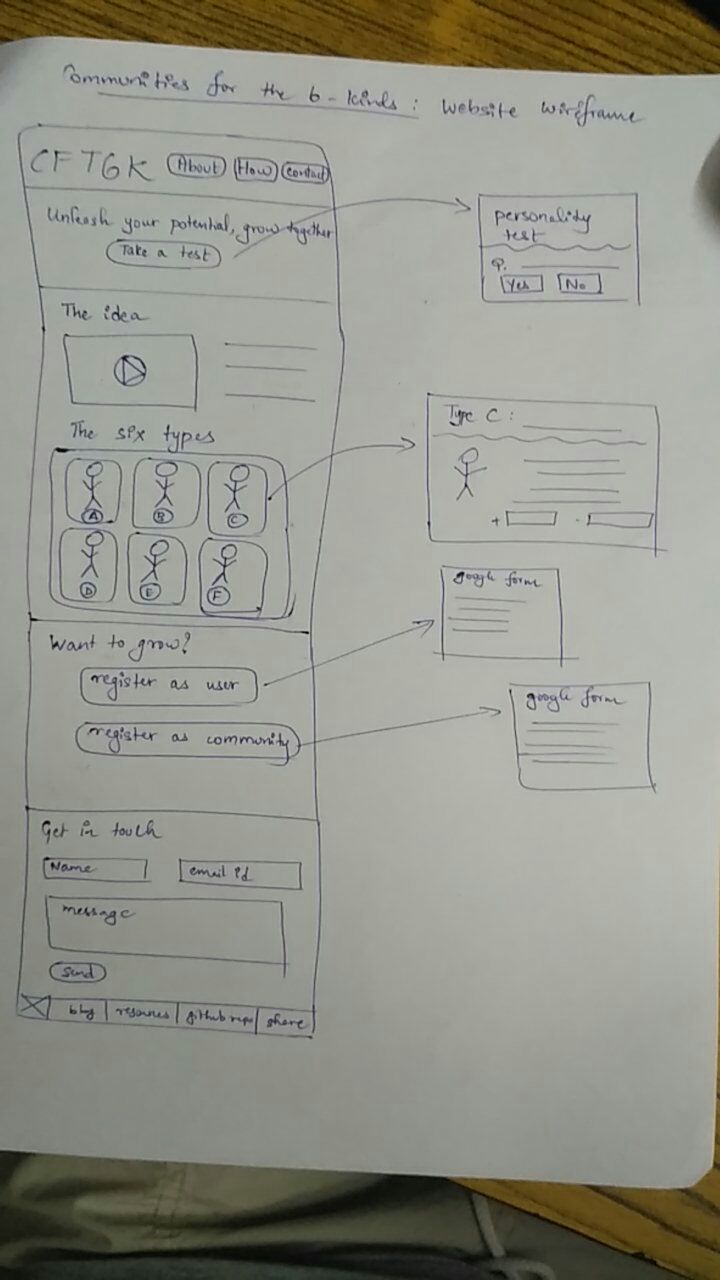 Communities for the 6-kinds: Website wireframe
CFT6K About How contact
Unleash your potential, grow together
Take a test
personality
test
Q.
Yes No
The idea
The six types
A B C
D E F
Type C:
+ -
Want to grow?
register as user
register as community
google form
google form
Get in touch
Name email id
message
send
blog resources github repo share